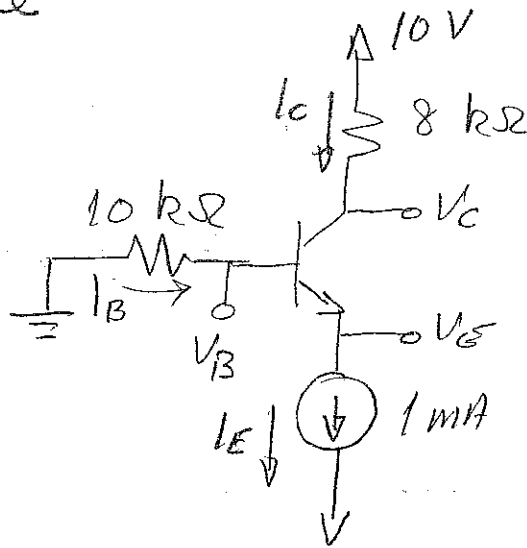 10 V
I_C
8 kΩ
V_C
10 kΩ
I_B
V_B
V_E
I_E
1 mA